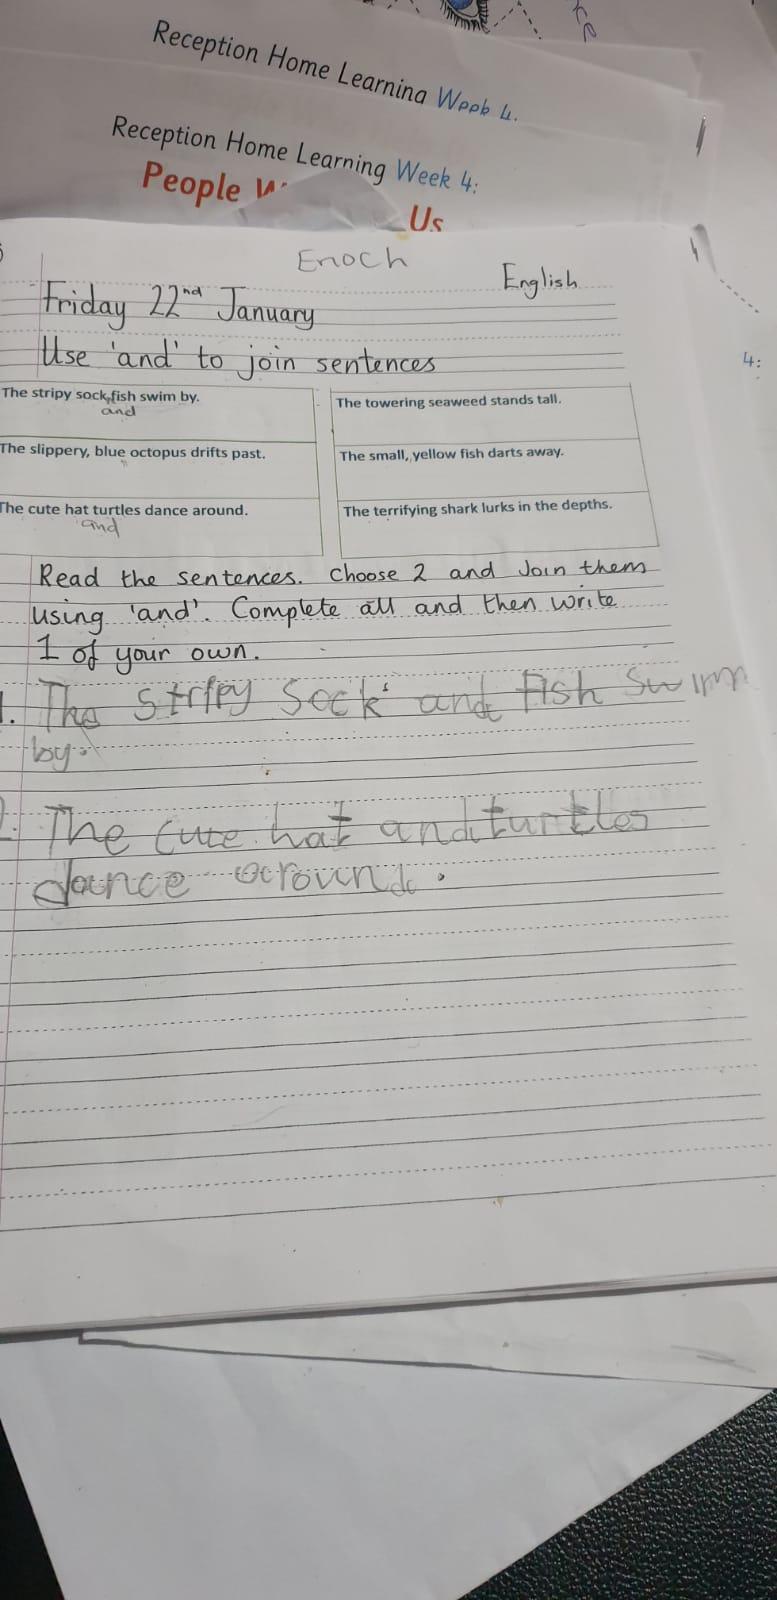 Reception Home Learning Week 4.
Reception Home Learning Week 4:
People W Us
Enoch
English
Friday 22nd January
Use 'and' to join sentences
4:
The stripy sock, fish swim by.
and
The towering seaweed stands tall.
The slippery, blue octopus drifts past.
The small, yellow fish darts away.
The cute hat turtles dance around.
and
The terrifying shark lurks in the depths.
Read the sentences. Choose 2 and Join them
using 'and'. Complete all and then write
1 of your own.
1. The stripy sock and fish swim
by.
The cute hat and turtles
dance around.